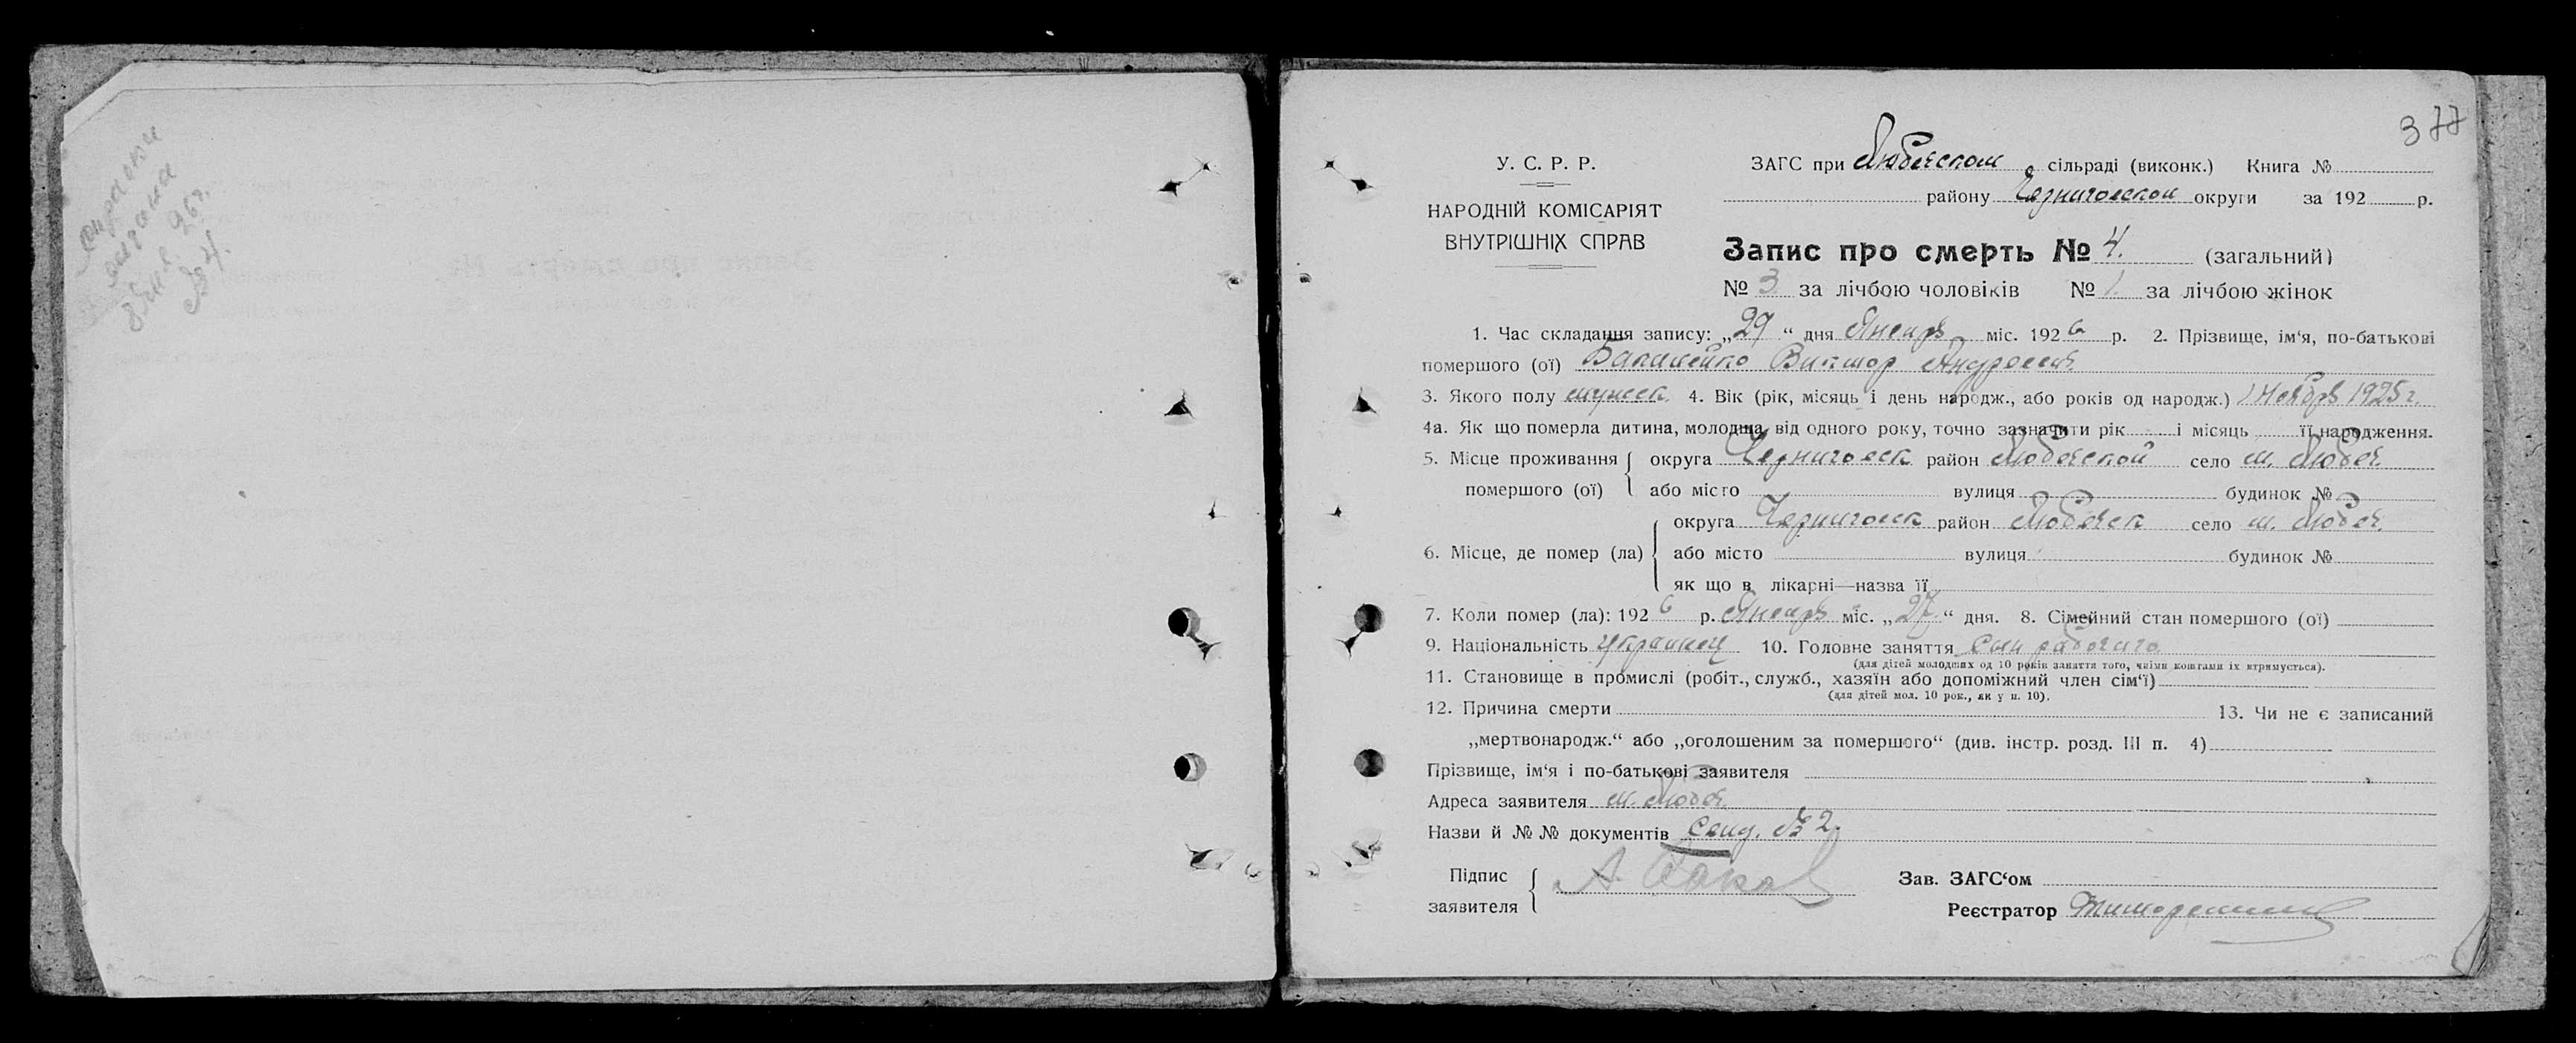 справки
выдана
8 янв. 26 г.
№ 4.
377
У. С. Р. Р.
НАРОДНІЙ КОМІСАРІЯТ
ВНУТРІШНІХ СПРАВ
ЗАГС при Любечском сільраді (виконк.) Книга №
району Черниговской округи за 192 р.
Запис про смерть № 4. (загальний)
№ 3 за лічбою чоловіків № 1 за лічбою жінок
1. Час складання запису: „29“ дня Январь міс. 1926 р. 2. Прізвище, ім‘я, по-батькові
помершого (ої) Виктор Андреевич
3. Якого полу мужск. 4. Вік (рік, місяць і день народж., або років од народж.) 1925 г.
4а. Як що померла дитина, молодша від одного року, точно зазначити рік і місяць її народження.
5. Місце проживання помершого (ої) округа Черниговск район Любечской село м. Любеч.
або місто вулиця будинок №
6. Місце, де помер (ла) округа Черниговск район Любечск село м. Любеч.
або місто вулиця будинок №
як що в лікарні—назва її
7. Коли помер (ла): 1926 р. Январь міс. „27“ дня. 8. Сімейний стан помершого (ої)
9. Національність украинец 10. Головне заняття сын рабочего
(для дітей молодших од 10 років заняття того, чиїми коштами їх втримується).
11. Становище в промислі (робіт., служб., хазяїн або допоміжний член сім‘ї)
(для дітей мол. 10 рок., як у п. 10).
12. Причина смерти 13. Чи не є записаний
„мертвонародж.“ або „оголошеним за помершого“ (див. інстр. розд. III п. 4)
Прізвище, ім‘я і по-батькові заявителя
Адреса заявителя м. Любеч.
Назви й № № документів № 2.
Підпис
заявителя
Зав. ЗАГС‘ом
Реєстратор